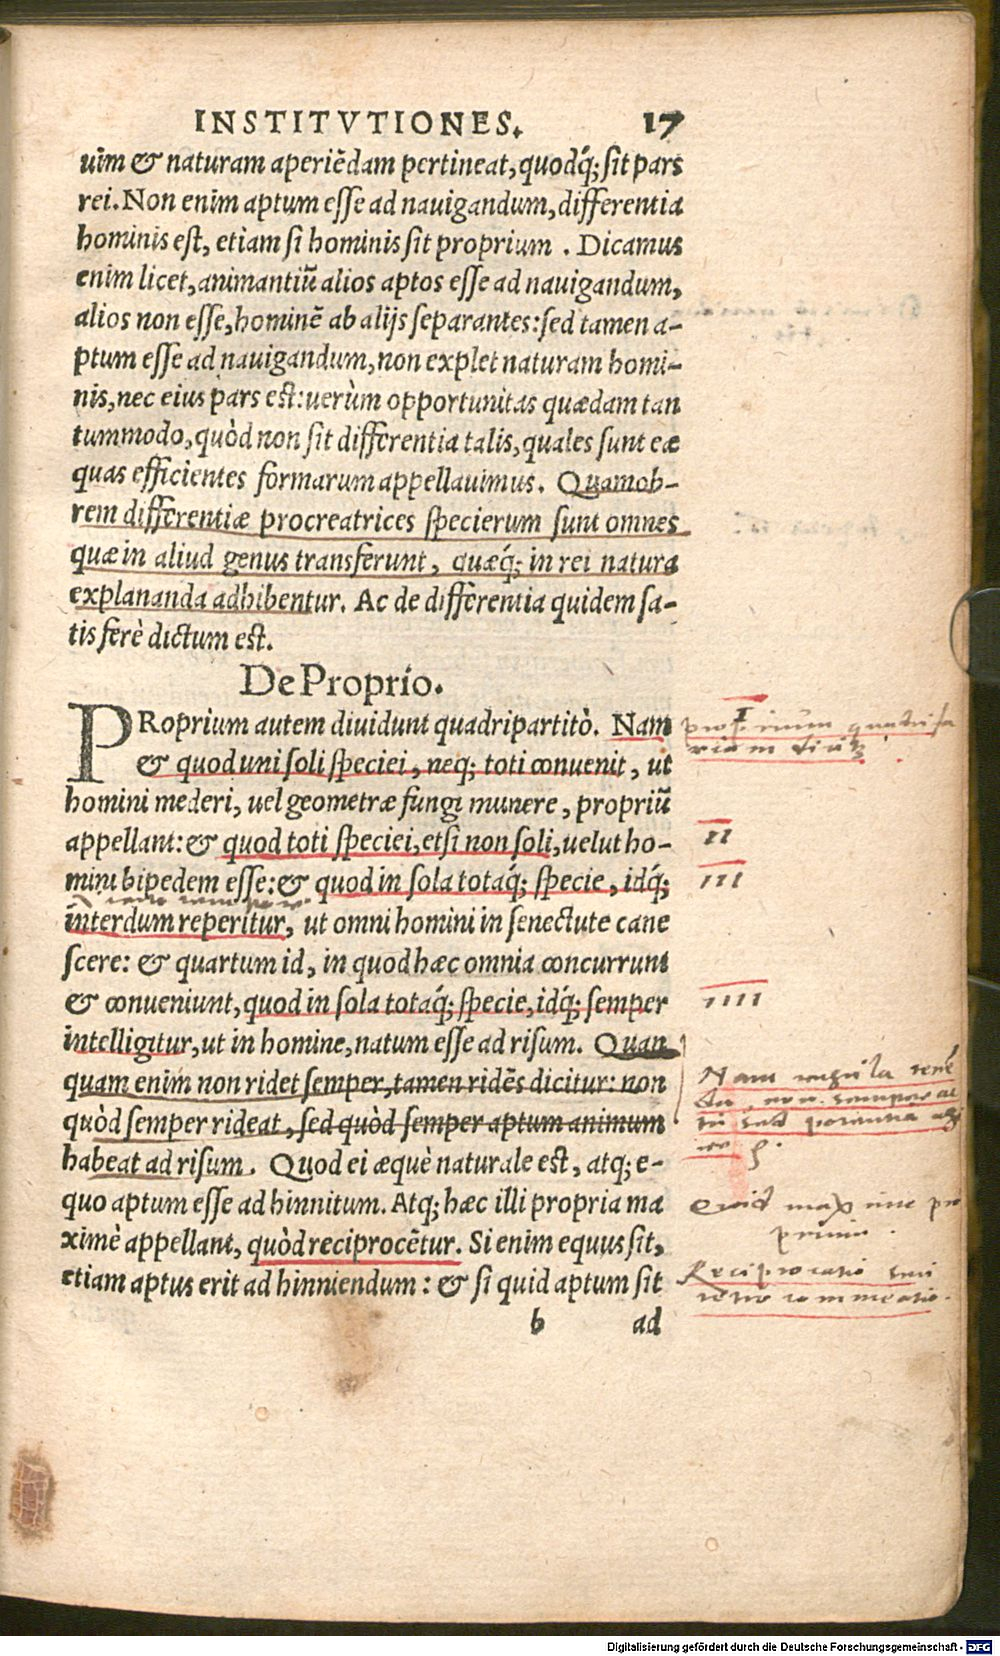 INSTITVTIONES. 17
uim & naturam aperiēdam pertineat, quodq́; sit pars
rei. Non enim aptum esse ad nauigandum, differentia
hominis est, etiam si hominis sit proprium. Dicamus
enim licet, animantiū alios aptos esse ad nauigandum,
alios non esse, hominē ab alijs separantes: sed tamen a-
ptum esse ad nauigandum, non explet naturam homi-
nis, nec eius pars est: uerùm opportunitas quædam tan
tummodo, quòd non sit differentia talis, quales sunt eæ
quas efficientes formarum appellauimus. Quamob-
rem differentiæ procreatrices specierum sunt omnes
quæ in aliud genus transferunt, quæq́; in rei natura
explananda adhibentur. Ac de differentia quidem sa-
tis ferè dictum est.
De Proprio.
PRoprium autem diuidunt quadripartitò. Nam
& quod uni soli speciei, neq; toti conuenit, ut
homini mederi, uel geometræ fungi munere, propriū
appellant: & quod toti speciei, etsi non soli, uelut ho-
mini bipedem esse: & quod in sola totaq́; specie, idq́;
interdum reperitur, ut omni homini in senectute cane
scere: & quartum id, in quod hæc omnia concurrunt
& conueniunt, quod in sola totaq́; specie, idq́; semper
intelligitur, ut in homine, natum esse ad risum. Quan
quam enim non ridet semper, tamen ridēs dicitur: non
quòd semper rideat, sed quòd semper aptum animum
habeat ad risum. Quod ei æquè naturale est, atq; e-
quo aptum esse ad hinnitum. Atq; hæc illi propria ma
ximè appellant, quòd reciprocētur. Si enim equus sit,
etiam aptus erit ad hinniendum: & si quid aptum sit
b ad
I
II
III
IIII
Reciprocatio
Digitalisierung gefördert durch die Deutsche Forschungsgemeinschaft - DFG